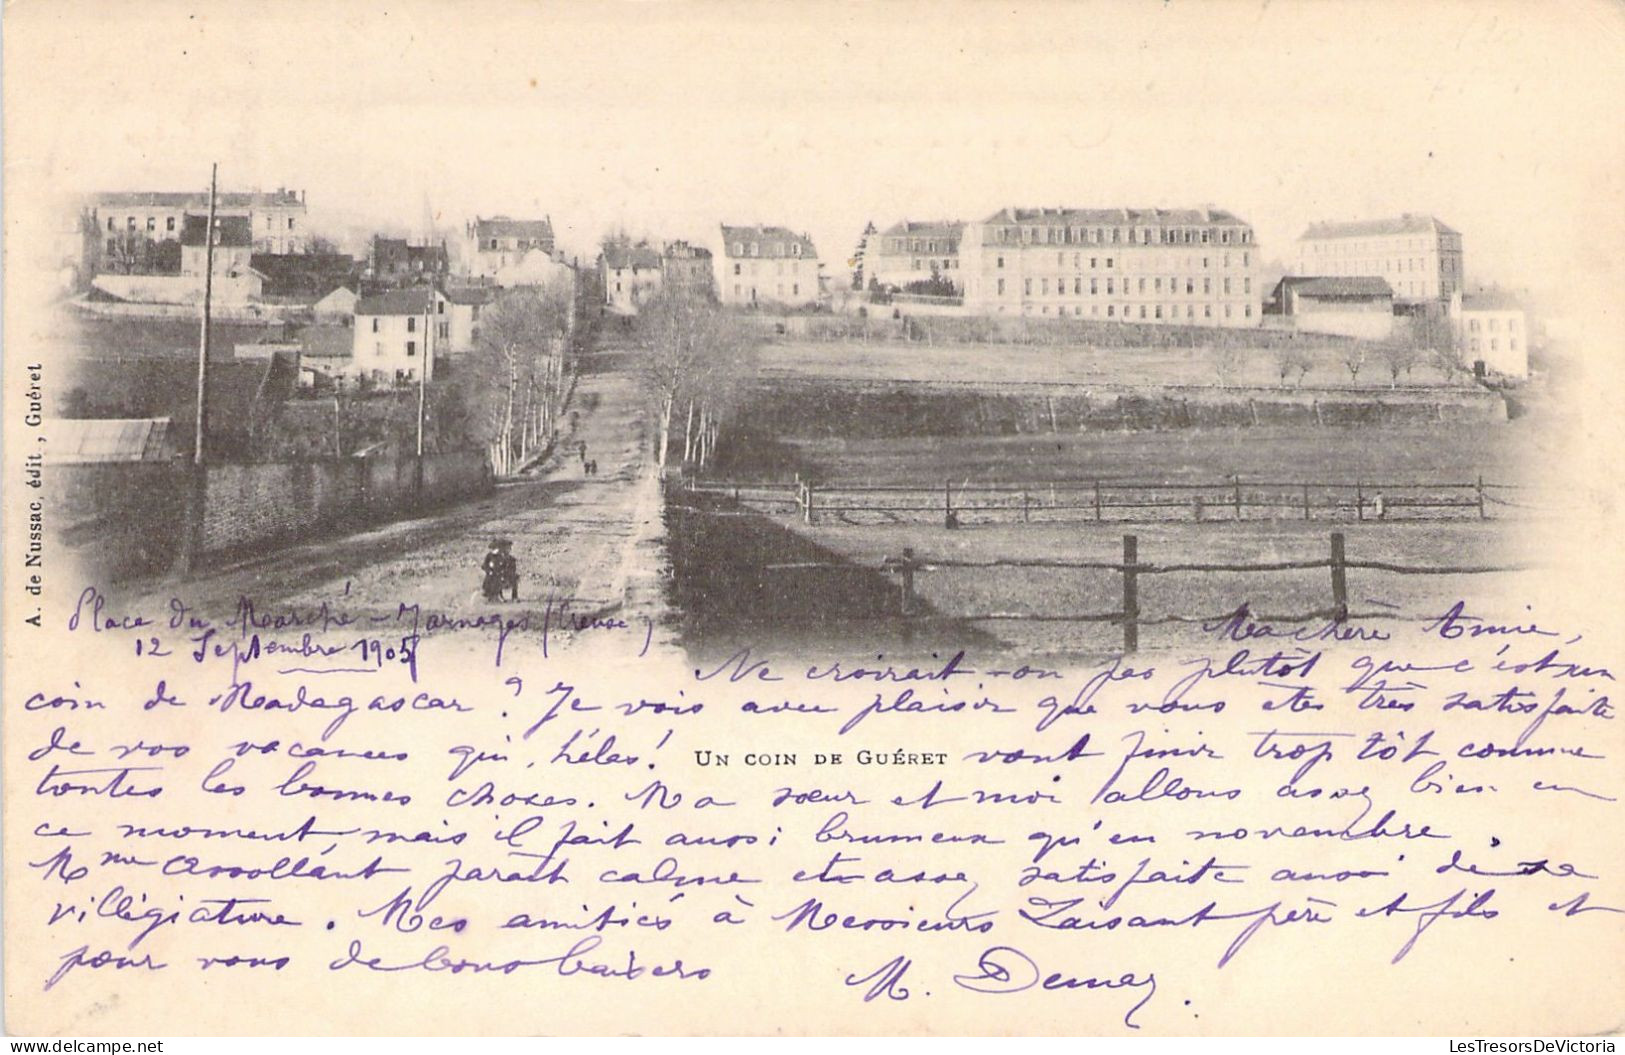 A. de Nussac, édit., Guéret
Place du Marché - Jarnages (Creuse)
12 Septembre 1905
Ma chère Amie,
Ne croirait-on pas plutôt que c'est un
coin de Madagascar ? Je vois avec plaisir que vous êtes très satisfaite
de vos vacances qui, hélas ! vont finir trop tôt comme
UN COIN DE GUÉRET
toutes les bonnes choses. Ma sœur et moi allons assez bien en
ce moment, mais il fait aussi brumeux qu'en novembre.
Mme Assollant paraît calme et assez satisfaite aussi de sa
villégiature. Mes amitiés à Messieurs Laisant père et fils et
pour vous de bons baisers
M. Demay.
LesTresorsDeVictoria
delcampe.net